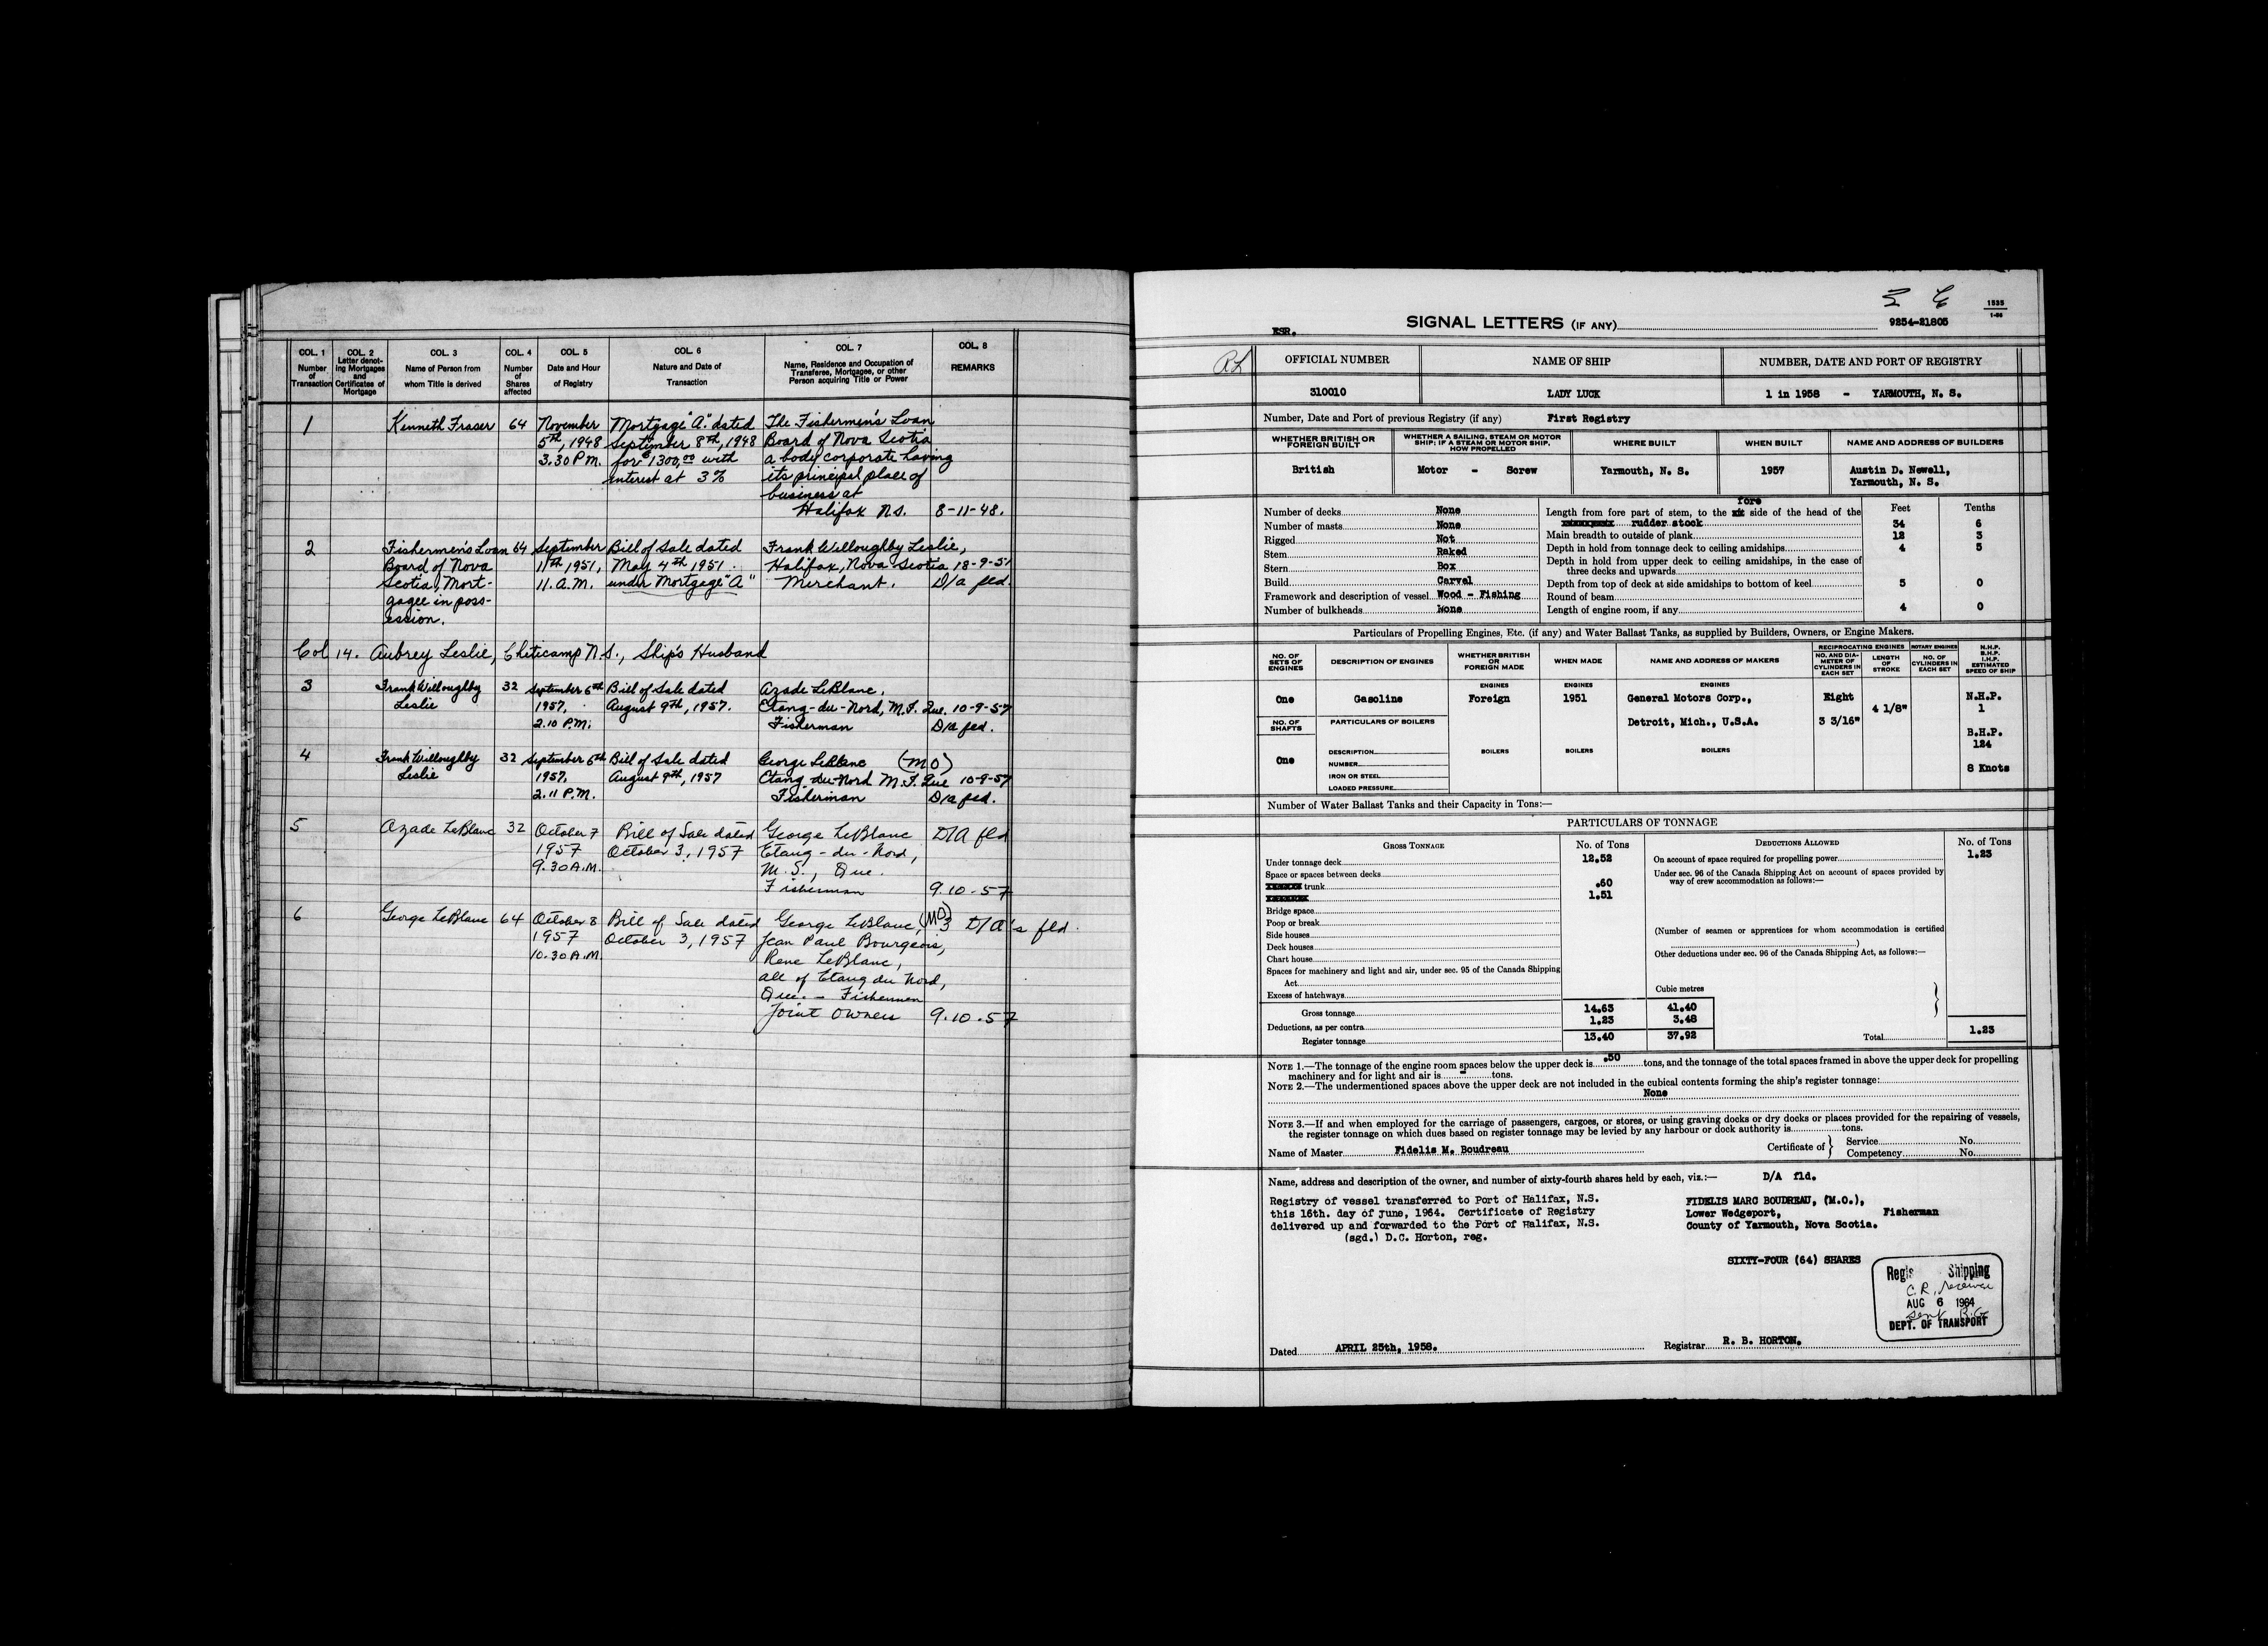 COL. 1
Number
of
Transaction
COL. 2
Letter denot-
ing Mortgages
and
Certificates of
Mortgage
COL. 3
Name of Person from
whom Title is derived
COL. 4
Number
of
Shares
affected
COL. 5
Date and Hour
of Registry
COL. 6
Nature and Date of
Transaction
COL. 7
Name, Residence and Occupation of
Transferee, Mortgagee, or other
Person acquiring Title or Power
COL. 8
REMARKS
1
Kenneth Fraser
64
November
5th, 1948
3.30 P.M.
Mortgage "A" dated
September 8th, 1948
for $1300.00 with
interest at 3%
The Fishermen's Loan
Board of Nova Scotia
a body corporate having
its principal place of
business at
Halifax N.S.
8-11-48.
2
Fishermen's Loan
Board of Nova
Scotia, Mort-
gagee in poss-
ession.
64
September
11th 1951,
11. A.M.
Bill of Sale dated
May 4th 1951.
under Mortgage "A"
Frank Willoughby Leslie,
Halifax, Nova Scotia
Merchant.
18-9-51
D/a fld.
Col 14. Aubrey Leslie, Cheticamp N.S., Ship's Husband
3
Frank Willoughby
Leslie
32
September 6th
1957,
2.10 P.M.
Bill of Sale dated
August 9th, 1957.
Azade LeBlanc,
Etang-du-Nord, M.I. Que.
Fisherman
10-9-57
D/a fld.
4
Frank Willoughby
Leslie
32
September 6th
1957,
2.11 P.M.
Bill of Sale dated
August 9th, 1957
George LeBlanc (MO)
Etang-du-Nord M.I. Que
Fisherman
10-9-57
D/a fld.
5
Azade LeBlanc
32
October 7
1957
9.30 A.M.
Bill of Sale dated
October 3, 1957
George LeBlanc
Etang-du-Nord,
M.I., Que.
Fisherman
D/A fld
9.10-57
6
George LeBlanc
64
October 8
1957
10.30 A.M.
Bill of Sale dated
October 3, 1957
George LeBlanc, (MO)
Jean Paul Bourgeois,
Rene LeBlanc,
all of Etang du Nord,
Que. - Fishermen
Joint Owners
3 D/A's fld.
9.10.57
1535
1-56
ESR.
SIGNAL LETTERS (IF ANY)
9254-21805
OFFICIAL NUMBER
NAME OF SHIP
NUMBER, DATE AND PORT OF REGISTRY
310010
LADY LUCK
1 in 1958 - YARMOUTH, N. S.
Number, Date and Port of previous Registry (if any) First Registry
WHETHER BRITISH OR
FOREIGN BUILT
WHETHER A SAILING, STEAM OR MOTOR
SHIP; IF A STEAM OR MOTOR SHIP,
HOW PROPELLED
WHERE BUILT
WHEN BUILT
NAME AND ADDRESS OF BUILDERS
British
Motor - Screw
Yarmouth, N. S.
1957
Austin D. Newell,
Yarmouth, N. S.
Number of decks None
Number of masts None
Rigged Not
Stem Raked
Stern Box
Build Carvel
Framework and description of vessel Wood - Fishing
Number of bulkheads None
Feet
Tenths
fore
Length from fore part of stem, to the side of the head of the
rudder stock 34 6
Main breadth to outside of plank 12 3
Depth in hold from tonnage deck to ceiling amidships 4 5
Depth in hold from upper deck to ceiling amidships, in the case of
three decks and upwards
Depth from top of deck at side amidships to bottom of keel 5 0
Round of beam
Length of engine room, if any 4 0
Particulars of Propelling Engines, Etc. (if any) and Water Ballast Tanks, as supplied by Builders, Owners, or Engine Makers.
NO. OF
SETS OF
ENGINES
DESCRIPTION OF ENGINES
WHETHER BRITISH
OR
FOREIGN MADE
WHEN MADE
NAME AND ADDRESS OF MAKERS
RECIPROCATING ENGINES
NO. AND DIA-
METER OF
CYLINDERS IN
EACH SET
LENGTH
OF
STROKE
ROTARY ENGINES
NO. OF
CYLINDERS IN
EACH SET
N.H.P.
B.H.P.
I.H.P.
ESTIMATED
SPEED OF SHIP
ENGINES
ENGINES
ENGINES
One
Gasoline
Foreign
1951
General Motors Corp.,
Detroit, Mich., U.S.A.
Eight
3 3/16"
4 1/8"
N.H.P.
1
B.H.P.
124
8 Knots
NO. OF
SHAFTS
One
PARTICULARS OF BOILERS
DESCRIPTION
NUMBER
IRON OR STEEL
LOADED PRESSURE
BOILERS
BOILERS
BOILERS
Number of Water Ballast Tanks and their Capacity in Tons:—
PARTICULARS OF TONNAGE
GROSS TONNAGE
No. of Tons
DEDUCTIONS ALLOWED
No. of Tons
Under tonnage deck 12.52
Space or spaces between decks
trunk .60
1.51
Bridge space
Poop or break
Side houses
Deck houses
Chart house
Spaces for machinery and light and air, under sec. 95 of the Canada Shipping
Act
Excess of hatchways
Cubic metres
Gross tonnage 14.63 41.40
Deductions, as per contra 1.23 3.48
Register tonnage 13.40 37.92
On account of space required for propelling power 1.23
Under sec. 96 of the Canada Shipping Act on account of spaces provided by
way of crew accommodation as follows:—
(Number of seamen or apprentices for whom accommodation is certified
)
Other deductions under sec. 96 of the Canada Shipping Act, as follows:—
Total 1.23
NOTE 1.—The tonnage of the engine room spaces below the upper deck is .50 tons, and the tonnage of the total spaces framed in above the upper deck for propelling
machinery and for light and air is - tons.
NOTE 2.—The undermentioned spaces above the upper deck are not included in the cubical contents forming the ship's register tonnage:
None
NOTE 3.—If and when employed for the carriage of passengers, cargoes, or stores, or using graving docks or dry docks or places provided for the repairing of vessels,
the register tonnage on which dues based on register tonnage may be levied by any harbour or dock authority is tons.
Name of Master Fidelis M. Boudreau
Certificate of
Service No.
Competency No.
Name, address and description of the owner, and number of sixty-fourth shares held by each, viz.:— D/A fld.
Registry of vessel transferred to Port of Halifax, N.S.
this 16th. day of June, 1964. Certificate of Registry
delivered up and forwarded to the Port of Halifax, N.S.
(sgd.) D.C. Horton, reg.
FIDELIS MARC BOUDREAU, (M.O.),
Lower Wedgeport, Fisherman
County of Yarmouth, Nova Scotia.
SIXTY-FOUR (64) SHARES
Regis Shipping
C.R. received
AUG 6 1964
sent
DEPT. OF TRANSPORT
Dated APRIL 25th, 1958.
Registrar R. B. HORTON.